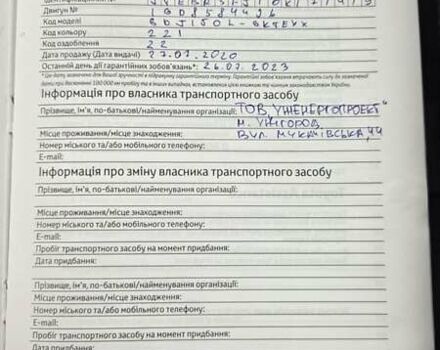 Двигун №
Код моделі
Код кольору 221
Код оздоблення 22
Дата продажу (Дата видачі) 27.07.2020
Останній день дії гарантійних зобов'язань*: 26.07.2023
Інформація про власника транспортного засобу
Прізвище, ім'я, по-батькові/найменування організації: ТОВ "УЖЕНЕРГОПРОЕКТ"
м. УЖГОРОД
Місце проживання/місце знаходження: ВУЛ. МУКАЧІВСЬКА, 44
Номер міського та/або мобільного телефону:
E-mail:
Інформація про зміну власника транспортного засобу
Прізвище, ім'я, по-батькові/найменування організації:
Місце проживання/місце знаходження:
Номер міського та/або мобільного телефону:
E-mail:
Пробіг транспортного засобу на момент придбання:
Дата придбання:
Прізвище, ім'я, по-батькові/найменування організації:
Місце проживання/місце знаходження:
Номер міського та/або мобільного телефону:
E-mail:
Пробіг транспортного засобу на момент придбання:
Дата придбання: